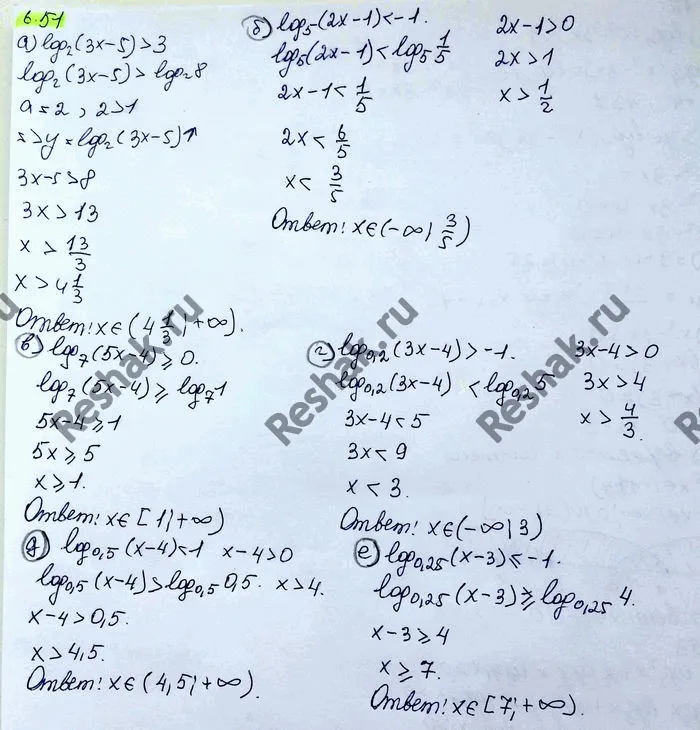 6.51
а) log₂(3x-5)>3
log₂(3x-5)>log₂8
a=2, 2>1
=>y=log₂(3x-5)↑
3x-5>8
3x>13
x>13/3
x>4 1/3
Ответ: x∈(4 1/3; +∞).
б) log₅(2x-1)<-1.
log₅(2x-1)<log₅ 1/5
2x-1<1/5
2x<6/5
x<3/5
2x-1>0
2x>1
x>1/2
Ответ: x∈(-∞; 3/5)
в) log₇(5x-4)≥0.
log₇(5x-4)≥log₇1
5x-4≥1
5x≥5
x≥1.
Ответ: x∈[1; +∞)
г) log₀,₂(3x-4)>-1.
log₀,₂(3x-4)<log₀,₂5
3x-4<5
3x<9
x<3.
3x-4>0
3x>4
x>4/3.
Ответ: x∈(-∞; 3)
д) log₀,₅(x-4)<1 x-4>0
log₀,₅(x-4)>log₀,₅0,5. x>4.
x-4>0,5.
x>4,5.
Ответ: x∈(4,5; +∞).
е) log₀,₂₅(x-3)≤-1.
log₀,₂₅(x-3)≥log₀,₂₅4.
x-3≥4
x≥7.
Ответ: x∈[7; +∞).
Reshak.ru
Reshak.ru
Reshak.ru
Reshak.ru